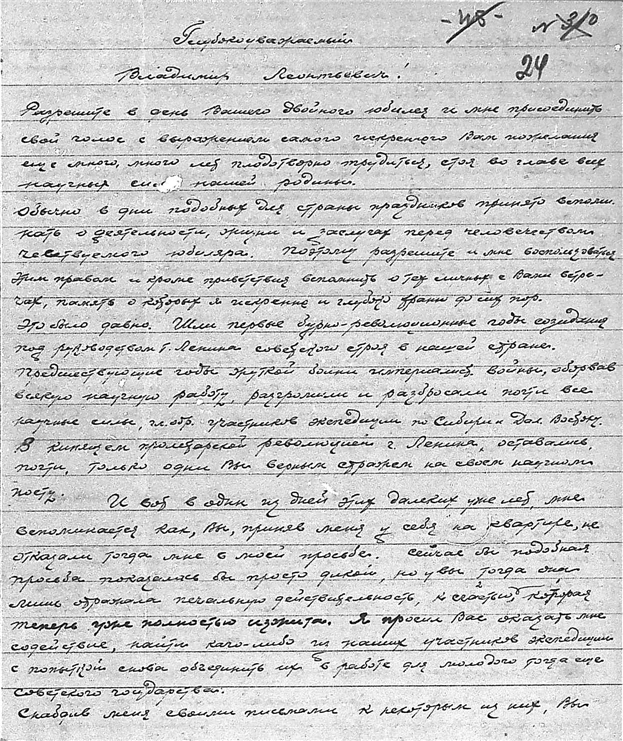 -45-
N 3/0
24
Глубокоуважаемый
Владимир Леонтьевич!
Разрешите в день Вашего двойного юбилея и мне присоединить
свой голос с выражением самого искреннего Вам пожелания
еще много, много лет плодотворно трудиться, стоя во главе всех
научных сил нашей родины.
Обычно в дни подобных для страны праздников принято вспоми-
нать о деятельности, жизни и заслугах перед человечеством
чествуемого юбиляра. Поэтому разрешите и мне воспользоваться
этим правом и кроме приветствия вспомнить о тех личных с Вами встре-
чах, память о которых я искренне и глубоко храню до сих пор.
Это было давно. Шли первые бурно-революционные годы созидания
под руководством Ленина советского строя в нашей стране.
Предшествующие годы жуткой бойни империалист. войны, оборвав
всякую научную работу, разгромили и разбросали почти все
научные силы, гл. обр. участников экспедиции по Сибири и Дал. Востоку.
В кипящем пролетарской революцией г. Ленина, оставались,
почти, только одни Вы верным стражем на своем научном
посту. И вот в один из дней этих далеких уже лет, мне
вспоминается как, Вы, приняв меня у себя на квартире, не
отказали тогда мне в моей просьбе. Сейчас бы подобная
просьба показалась бы просто дикой, но увы тогда она
лишь отражала печальную действительность, к счастью, которая
теперь уже полностью изжита. Я просил Вас оказать мне
содействие, найти кого-либо из наших участников экспедиции
с попыткой снова объединить их в работе для молодого тогда еще
Советского государства.
Снабдив меня своими письмами к некоторым из них, Вы